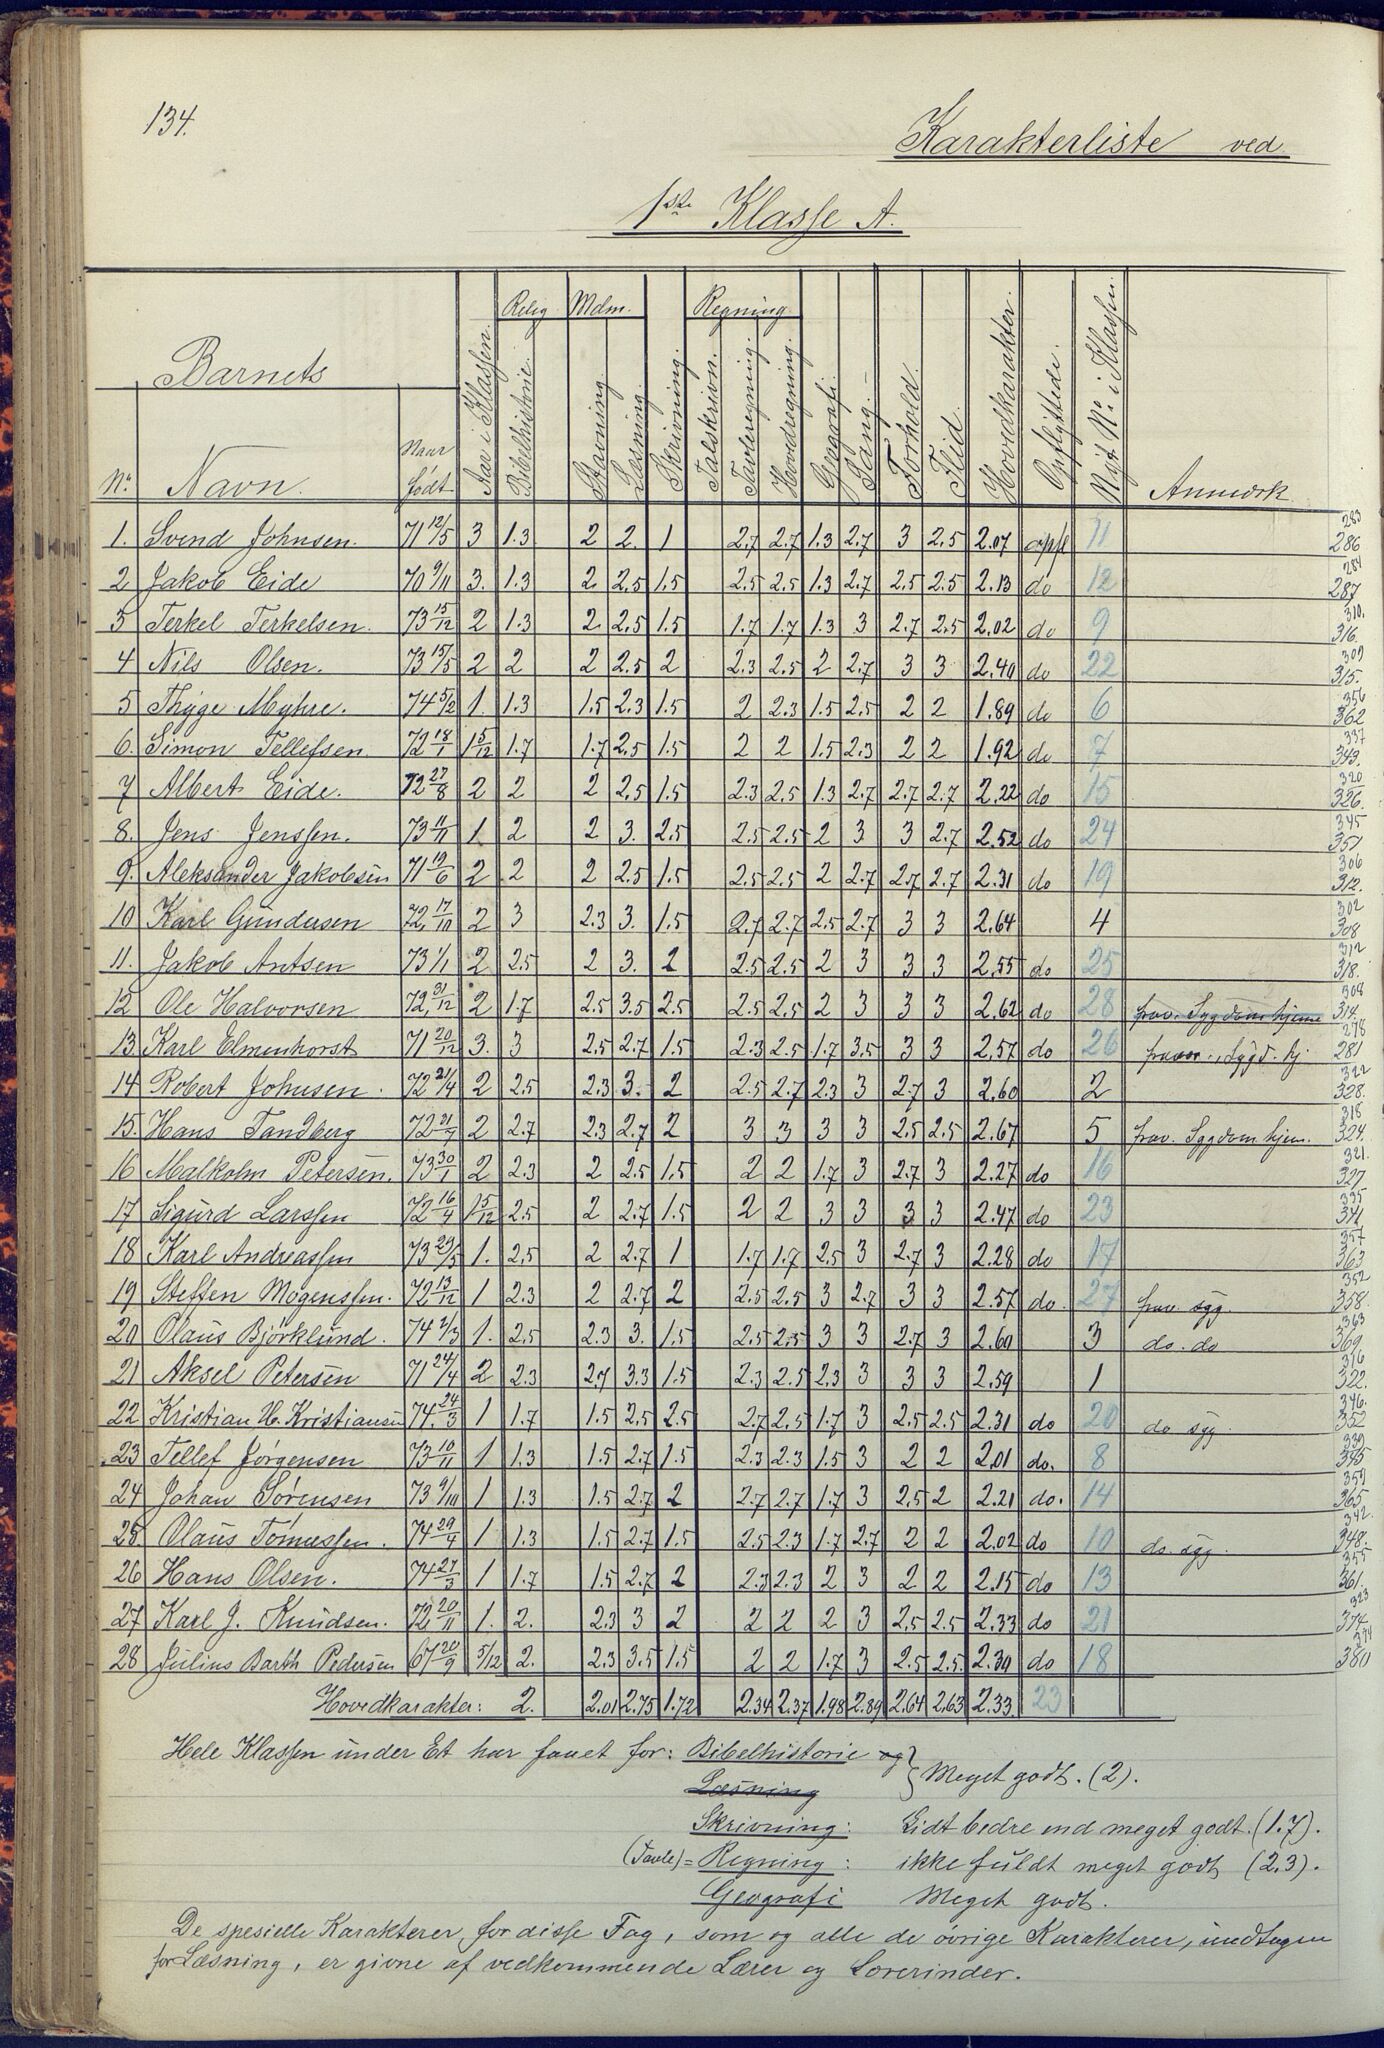 134.
Karakterliste ved
1ste Klasse A.
Barnets
Nr. Navn. Naar født Aar i Klassen. Relig Bibelhistorie. Mdm. Stavning. Læsning. Skrivning. Regning Talskrivn. Tavleregning. Hovedregning. Geografi. Sang. Forhold. Flid. Hovedkarakter. Opflyttede. Nyt No i Klassen. Anmærk
1. Svend Johnsen. 71 12/5 3 1.3 2 2. 1 2.7 2.7 1.3 2.7 3 2.5 2.07 opfl 11 283 286
2 Jakob Eide 70 9/11 3. 1.3 2. 2.5 1.5 2.5 2.5 1.3 2.7 2.5 2.5 2.13 do 12 284 287
3 Terkel Terkelsen. 73 15/12 2 1.3 2. 2.5 1.5 1.7 1.7 1.3 3 2.7 2.5 2.02 do 9 310. 316.
4 Nils Olsen. 73 15/5 2 2 2 2.5 2 2.3 2.5 2 2.7 3 3 2.40 do 22 309 315.
5 Thyge Myhre. 74 5/2 1. 1.3 1.5 2.3 1.5 2 2.3 1.5 2.5 2 2 1.89 do 6 356 362
6. Simon Tellefsen. 72 18/1 1 5/12 1.7 1.7 2.5 1.5 2 2 1.5 2.3 2 2 1.92 do 7 337 343.
7 Albert Eide. 72 27/8 2 2 2 2.5 1.5 2.3 2.5 1.3 2.7 2.7 2.7 2.22 do 15 320 326.
8. Jens Jenssen. 73 11/11 1 2 2 3. 2.5 2.5 2.5 2 3 3 2.7 2.52 do 24 345 351
9. Aleksander Jakobsen 71 19/6 2 2 2 2.5 1.5 2.5 2.5 2 2.7 2.7 2.7 2.31 do 19 306 312.
10 Karl Gundersen 72 17/10 2 3 2.3 3. 1.5 2.7 2.7 2.5 2.7 3 3 2.64 4 302 308
11. Jakob Antsen 73 1/1 2 2.5 2 3. 2 2.5 2.5 2 3 3 3 2.55 do 25 312 318.
12 Ole Halvorsen 72 31/12 2 1.7 2.5 3.5 2.5 2.5 2.5 2 3 3 3 2.62 do 28 frav. Sygdom hjeme 308 314.
13. Karl Elmenhorst 71 20/12 3. 3 2.5 2.7 1.5 2.3 2.5 1.7 3.5 3 3 2.57 do 26 278 281
14 Robert Johnsen. 72 21/4 2 2.5 2.3 3. 2 2.5 2.7 2.3 3 2.7 3 2.60 2 322 328.
15. Hans Tandberg 2 2.7 2.3 2.7 2 3 3 3 3 2.5 2.5 2.67 5 frav. Sygdom hjem. 318 324.
16 Malkolm Petersen. 73 30/1 2 2.3 2 2.5 1.5 2 2 1.7 3 2.7 3 2.27 do 16 321. 327.
17 Sigurd Larssen 1 5/12 2.5 2 2.7 1.5 2 2 3 3 3 3 2.47 do 23 335 341
18 Karl Andreassen 73 29/5 1. 2.5 2 2.7 1 1.7 1.7 2.5 3 2.7 3 2.28 do 17 357 363
19 Steffen Mogenssen. 72 13/12 1 2.3 2 2.7 2 2.5 2.5 3 2.7 3 3 2.57 do. 27 frav. syg. 352 358.
20 Olaus Bjørklund. 1. 2.5 2.3 3. 1.5 2.5 2.5 3 3 2.7 3 2.60 3 do. do 363 369
21 Aksel Petersen 71 24/4 2 2.3 2.7 3.3 1.5 2.3 2.5 2.3 3 3 3 2.59 1 316 322.
22 Kristian H. Kristiansen 74 24/3 1 1.7 1.5 2.5 2.5 2.7 2.5 1.7 3 2.5 2.5 2.31 do 20 do syg. 346. 352
23 Tellef Jørgensen 73 10/11 1 1.3 1.5 2.7 1.5 2.3 2.3 1.5 3 2 2 2.01 do. 8 339 345
24 Johan Sørensen 73 9/10 1 1.3 1.5 2.7 2 2.7 2.7 1.7 3 2.5 2 2.21 do. 14 359 365.
25 Olaus Tomassen. 74 29/4 1 1.3 1.5 2.7 1.5 2.5 2.3 1.7 2.7 2 2 2.02 do 10 do. syg. 342. 348.
26 Hans Olsen. 74 27/3 1 1.7 1.5 2.7 2 2.3 2.3 2 3 2 2 2.15 do 13 355 361.
27 Karl J. Knudsen. 72 20/11 1. 2. 2.3 3 2 2 2 2 3 2.5 2.5 2.33 do 21 374
28 Julius Barth Pedersen 67 20/9 5/12 2. 2.3 3.5 1.5 2 2 1.7 3 2.5 2.5. 2.30 do 18 380
Hovedkarakter: 2. 2.01 2.75 1.72 2.34 2.37 1.98 2.89 2.64 2.63 2.33. 23
Hele Klassen under Et har faaet for: Bibelhistorie og } Meget godt. (2).
Læsning
Skrivning: Lidt bedre end meget godt. (1.7).
(Tavle)= Regning: ikke fuldt meget godt (2.3).
Geografi Meget godt.
De spesielle Karakterer for disse Fag, som og alle de øvrige Karakterer, undtagen
for Læsning, er givne af vedkommende Lærer og Lærerinder.